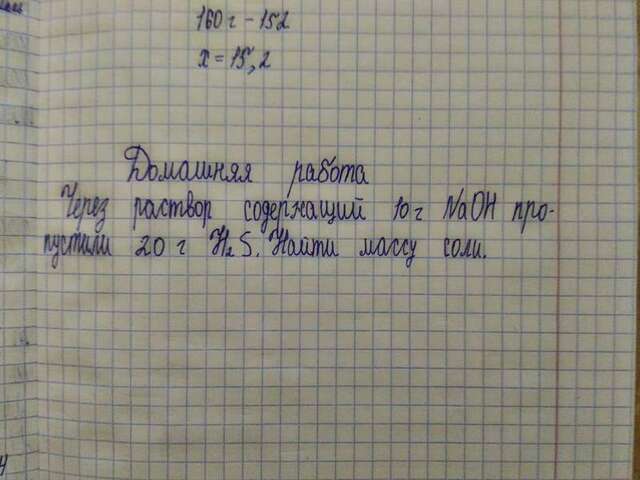 160 г – 152
x = 15,2
Домашняя работа
Через раствор содержащий 10 г NaOH про-
пустили 20 г H₂S. Найти массу соли.